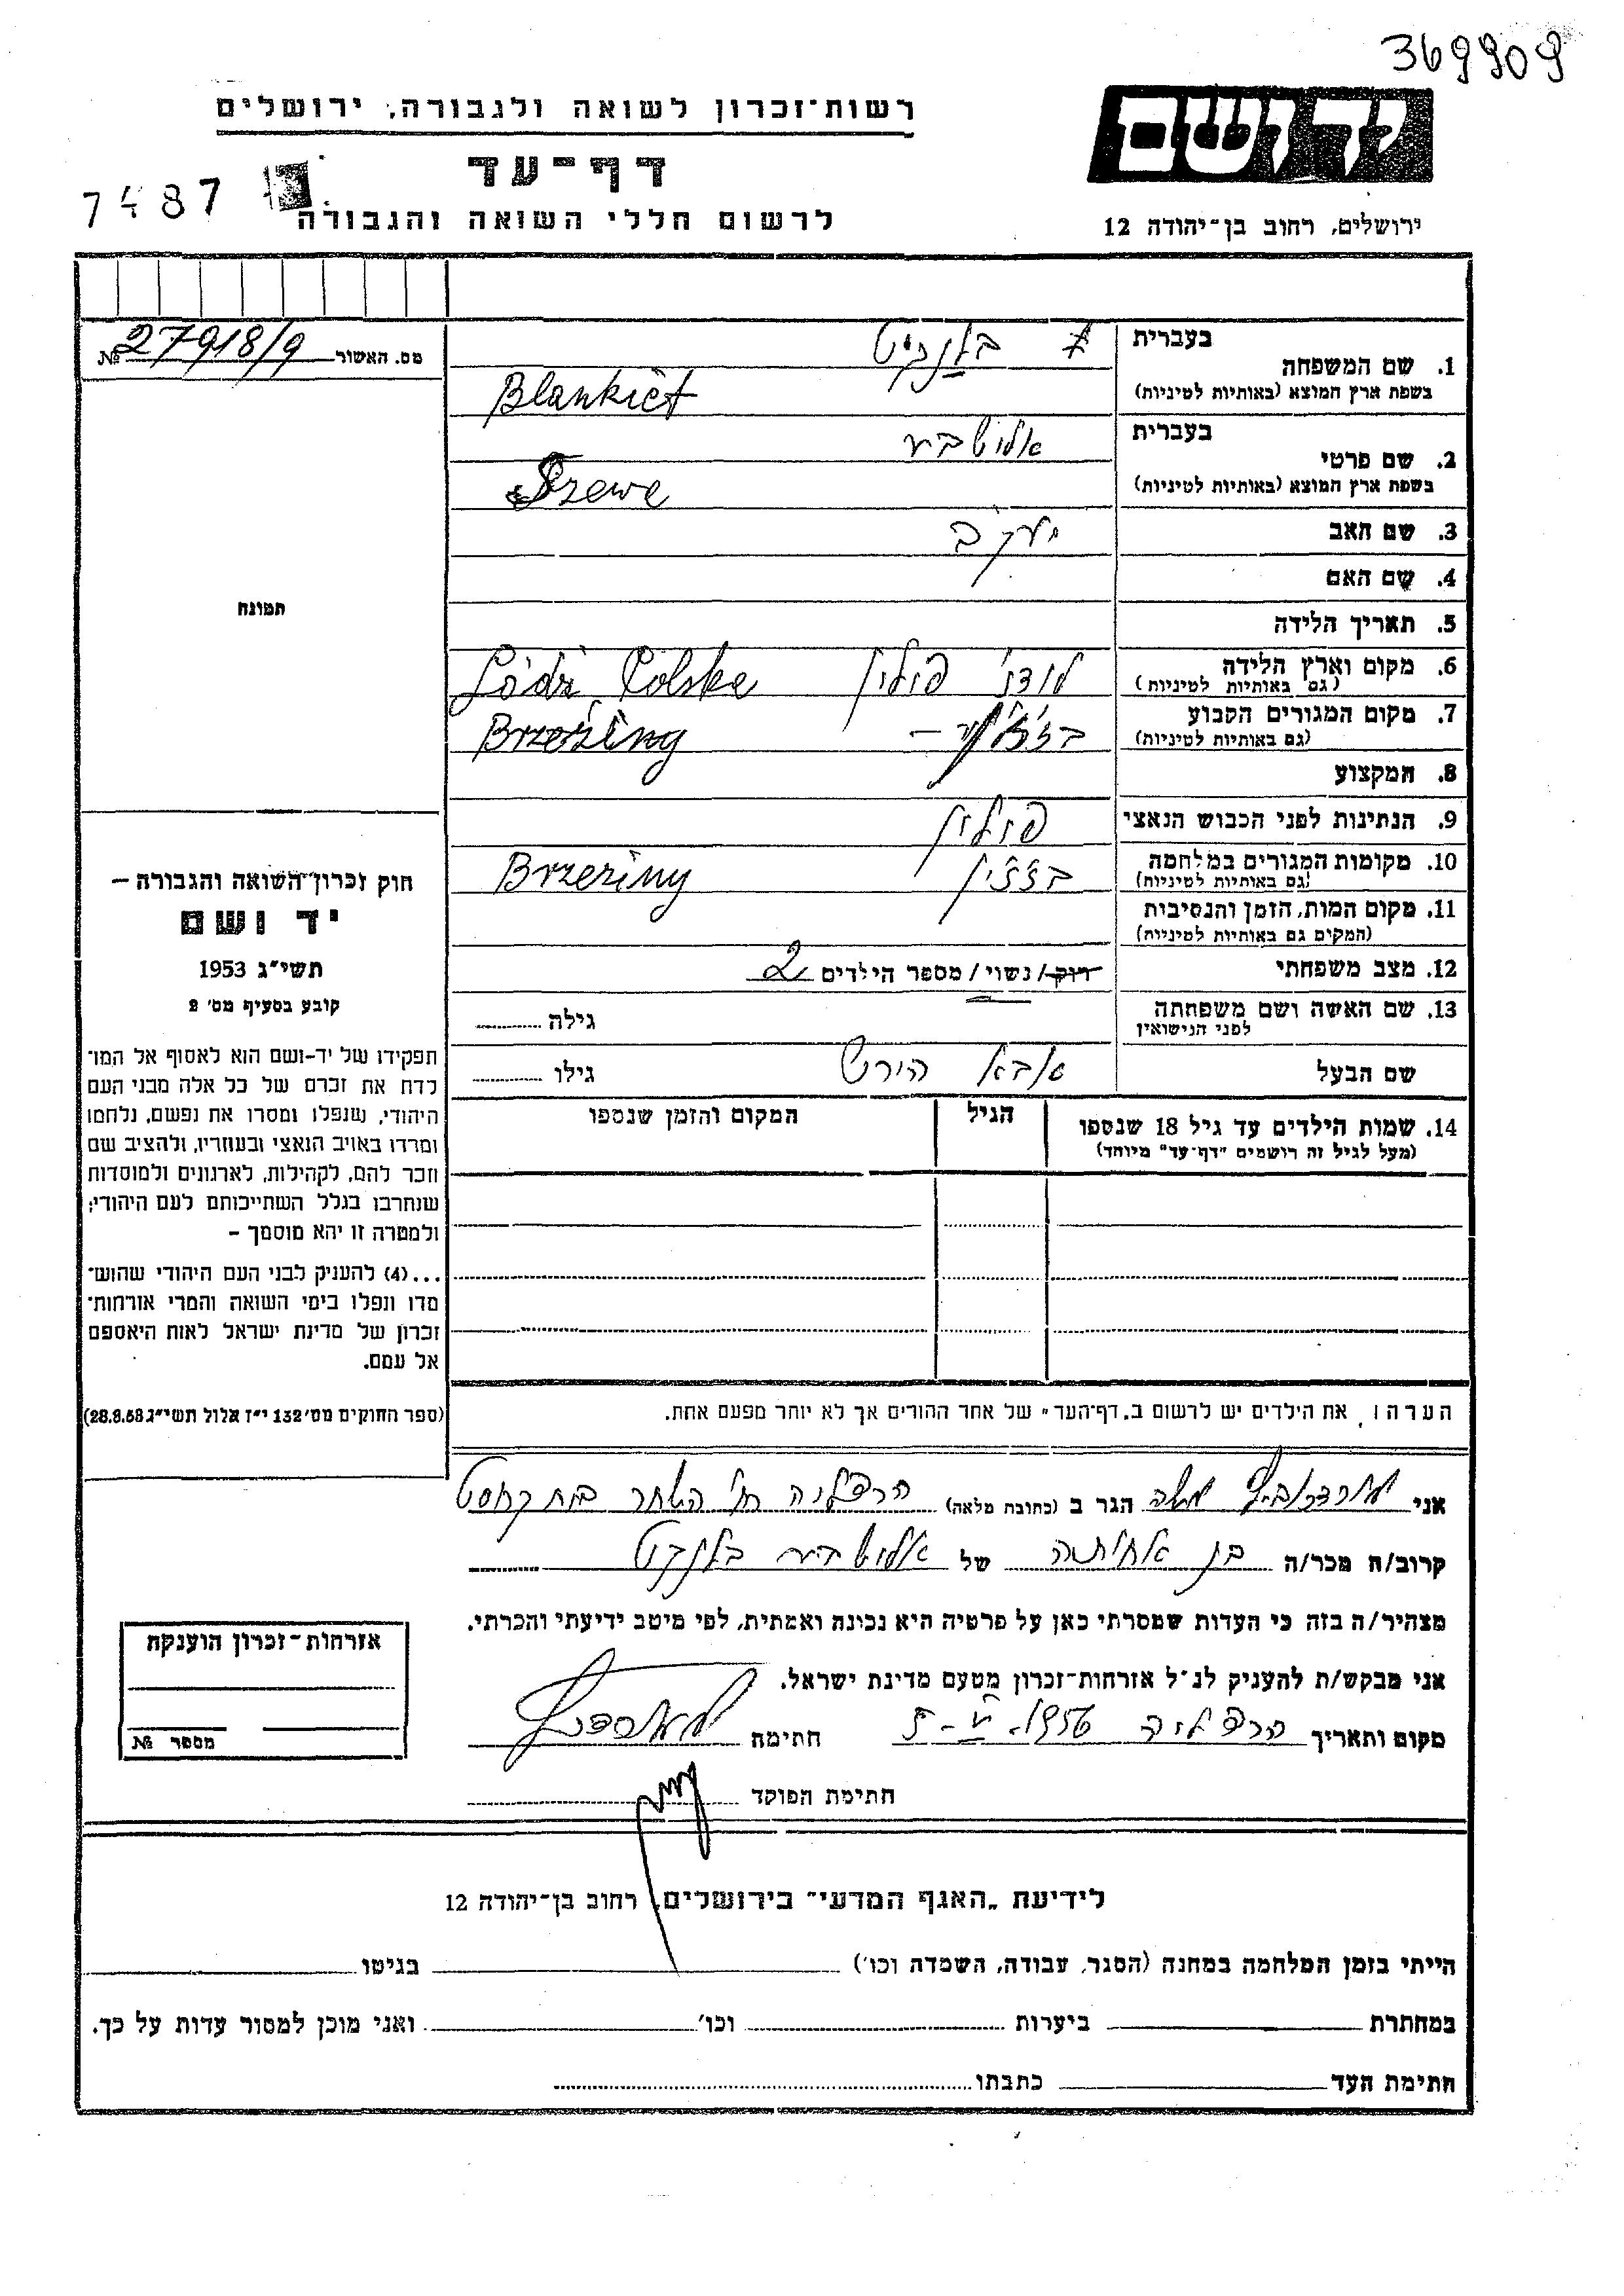 369909
רשות־זכרון לשואה ולגבורה, ירושלים
יד ושם
דף־עד
7487
לרשום חללי השואה והגבורה
ירושלים, רחוב בן־יהודה 12
מס. האשור № 27918/9
1. שם המשפחה בעברית בלנקיט
בשפת ארץ המוצא (באותיות לטיניות) Blankiet
2. שם פרטי בעברית
בשפת ארץ המוצא (באותיות לטיניות)
3. שם האב יעקב
4. שם האם
5. תאריך הלידה
6. מקום וארץ הלידה לודז' פולין Łódź Polska
(גם באותיות לטיניות)
7. מקום המגורים הקבוע Brzeziny
(גם באותיות לטיניות)
8. המקצוע
9. הנתינות לפני הכבוש הנאצי פולין
10. מקומות המגורים במלחמה Brzeziny
(גם באותיות לטיניות)
11. מקום המות, הזמן והנסיבות
(המקום גם באותיות לטיניות)
12. מצב משפחתי רוק/נשוי/מספר הילדים 2
13. שם האשה ושם משפחתה גילה
לפני הנישואין
שם הבעל אבא הירש גילו
14. שמות הילדים עד גיל 18 שנספו הגיל המקום והזמן שנספו
(מעל לגיל זה רושמים "דף־עד" מיוחד)
הערה, את הילדים יש לרשום ב„דף־העד" של אחד ההורים אך לא יותר מפעם אחת.
תמונה
חוק זכרון־השואה והגבורה —
יד ושם
תשי״ג 1953
קובע בסעיף מס' 2
תפקידו של יד־ושם הוא לאסוף אל המו־
לדת את זכרם של כל אלה מבני העם
היהודי, שנפלו ומסרו את נפשם, נלחמו
ומרדו באויב הנאצי ובעוזריו, ולהציב שם
וזכר להם, לקהילות, לארגונים ולמוסדות
שנחרבו בגלל השתייכותם לעם היהודי;
ולמטרה זו יהא מוסמך —
...(4) להעניק לבני העם היהודי שהוש־
מדו ונפלו בימי השואה והמרי אזרחות־
זכרון של מדינת ישראל לאות היאספם
אל עמם.
(ספר החוקים מס' 132 י״ז אלול תשי״ג 28.8.53)
אני משה הגר ב (כתובת מלאה) הרצליה
קרוב/ה מכר/ה בן אחותה של בלנקט
מצהיר/ה בזה כי העדות שמסרתי כאן על פרטיה היא נכונה ואמתית, לפי מיטב ידיעתי והכרתי.
אני מבקש/ת להעניק לנ״ל אזרחות־זכרון מטעם מדינת ישראל.
מקום ותאריך הרצליה 1956 חתימה
חתימת הפוקד
אזרחות־זכרון הוענקה
מספר №
לידיעת „האגף המדעי" בירושלים, רחוב בן־יהודה 12
הייתי בזמן המלחמה במחנה (הסגר, עבודה, השמדה וכו') בגיטו
במחתרת ביערות וכו' ואני מוכן למסור עדות על כך.
חתימת העד כתבתו